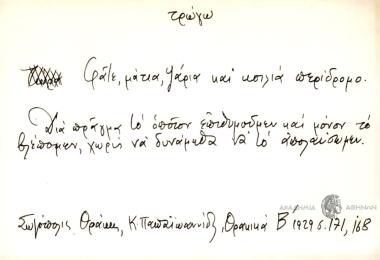 τρώγω
Φᾶτε, μάτια, ψάρια καὶ κοιλιά περίδρομο.
Διά πρᾶγμα τό ὁποῖον ἐπιθυμοῦμεν καί μόνον τό
βλέπομεν, χωρίς νά δυνάμεθα νά τό ἀπολαύσωμεν.
Σωζόπολις Θράκης, Κ. Παπαϊωαννίδης, Θρακικά Β 1929 σ. 171, 168
ΑΚΑΔΗΜΙΑ ΑΘΗΝΩΝ